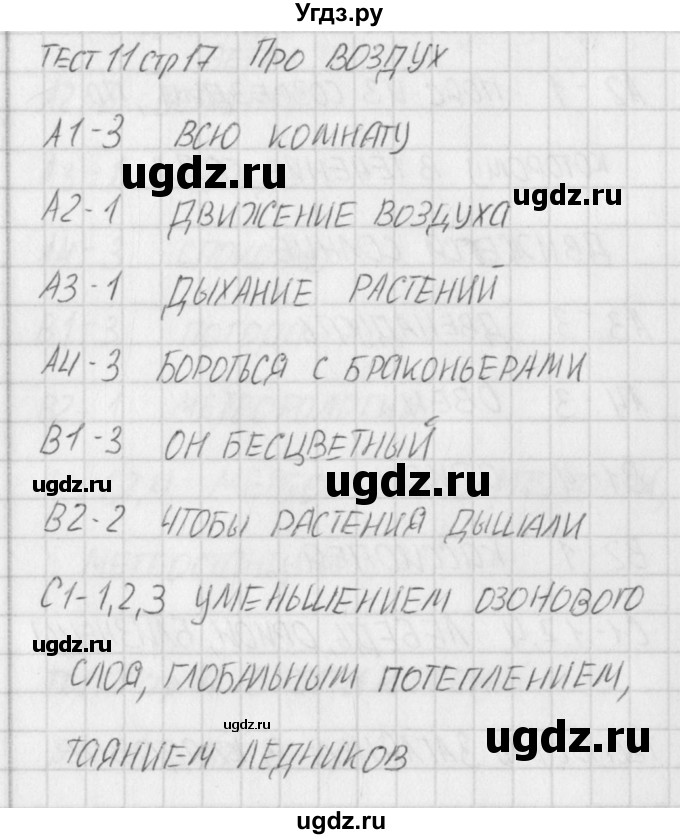 Угдз.ру
ТЕСТ 11 стр 17 ПРО ВОЗДУХ
А1-3 ВСЮ КОМНАТУ
ugdz.ru
ugdz.ru
А2-1 ДВИЖЕНИЕ ВОЗДУХА
А3-1 ДЫХАНИЕ РАСТЕНИЙ
А4-3 БОРОТЬСЯ С БРАКОНЬЕРАМИ
В1-3 ОН БЕСЦВЕТНЫЙ
ugdz.ru
ugdz.ru
В2-2 ЧТОБЫ РАСТЕНИЯ ДЫШАЛИ
С1-1,2,3 УМЕНЬШЕНИЕМ ОЗОНОВОГО
ugdz.ru
СЛОЯ, ГЛОБАЛЬНЫМ ПОТЕПЛЕНИЕМ,
ugdz.ru
ugdz.ru
ТАЯНИЕМ ЛЕДНИКОВ
ugdz.ru